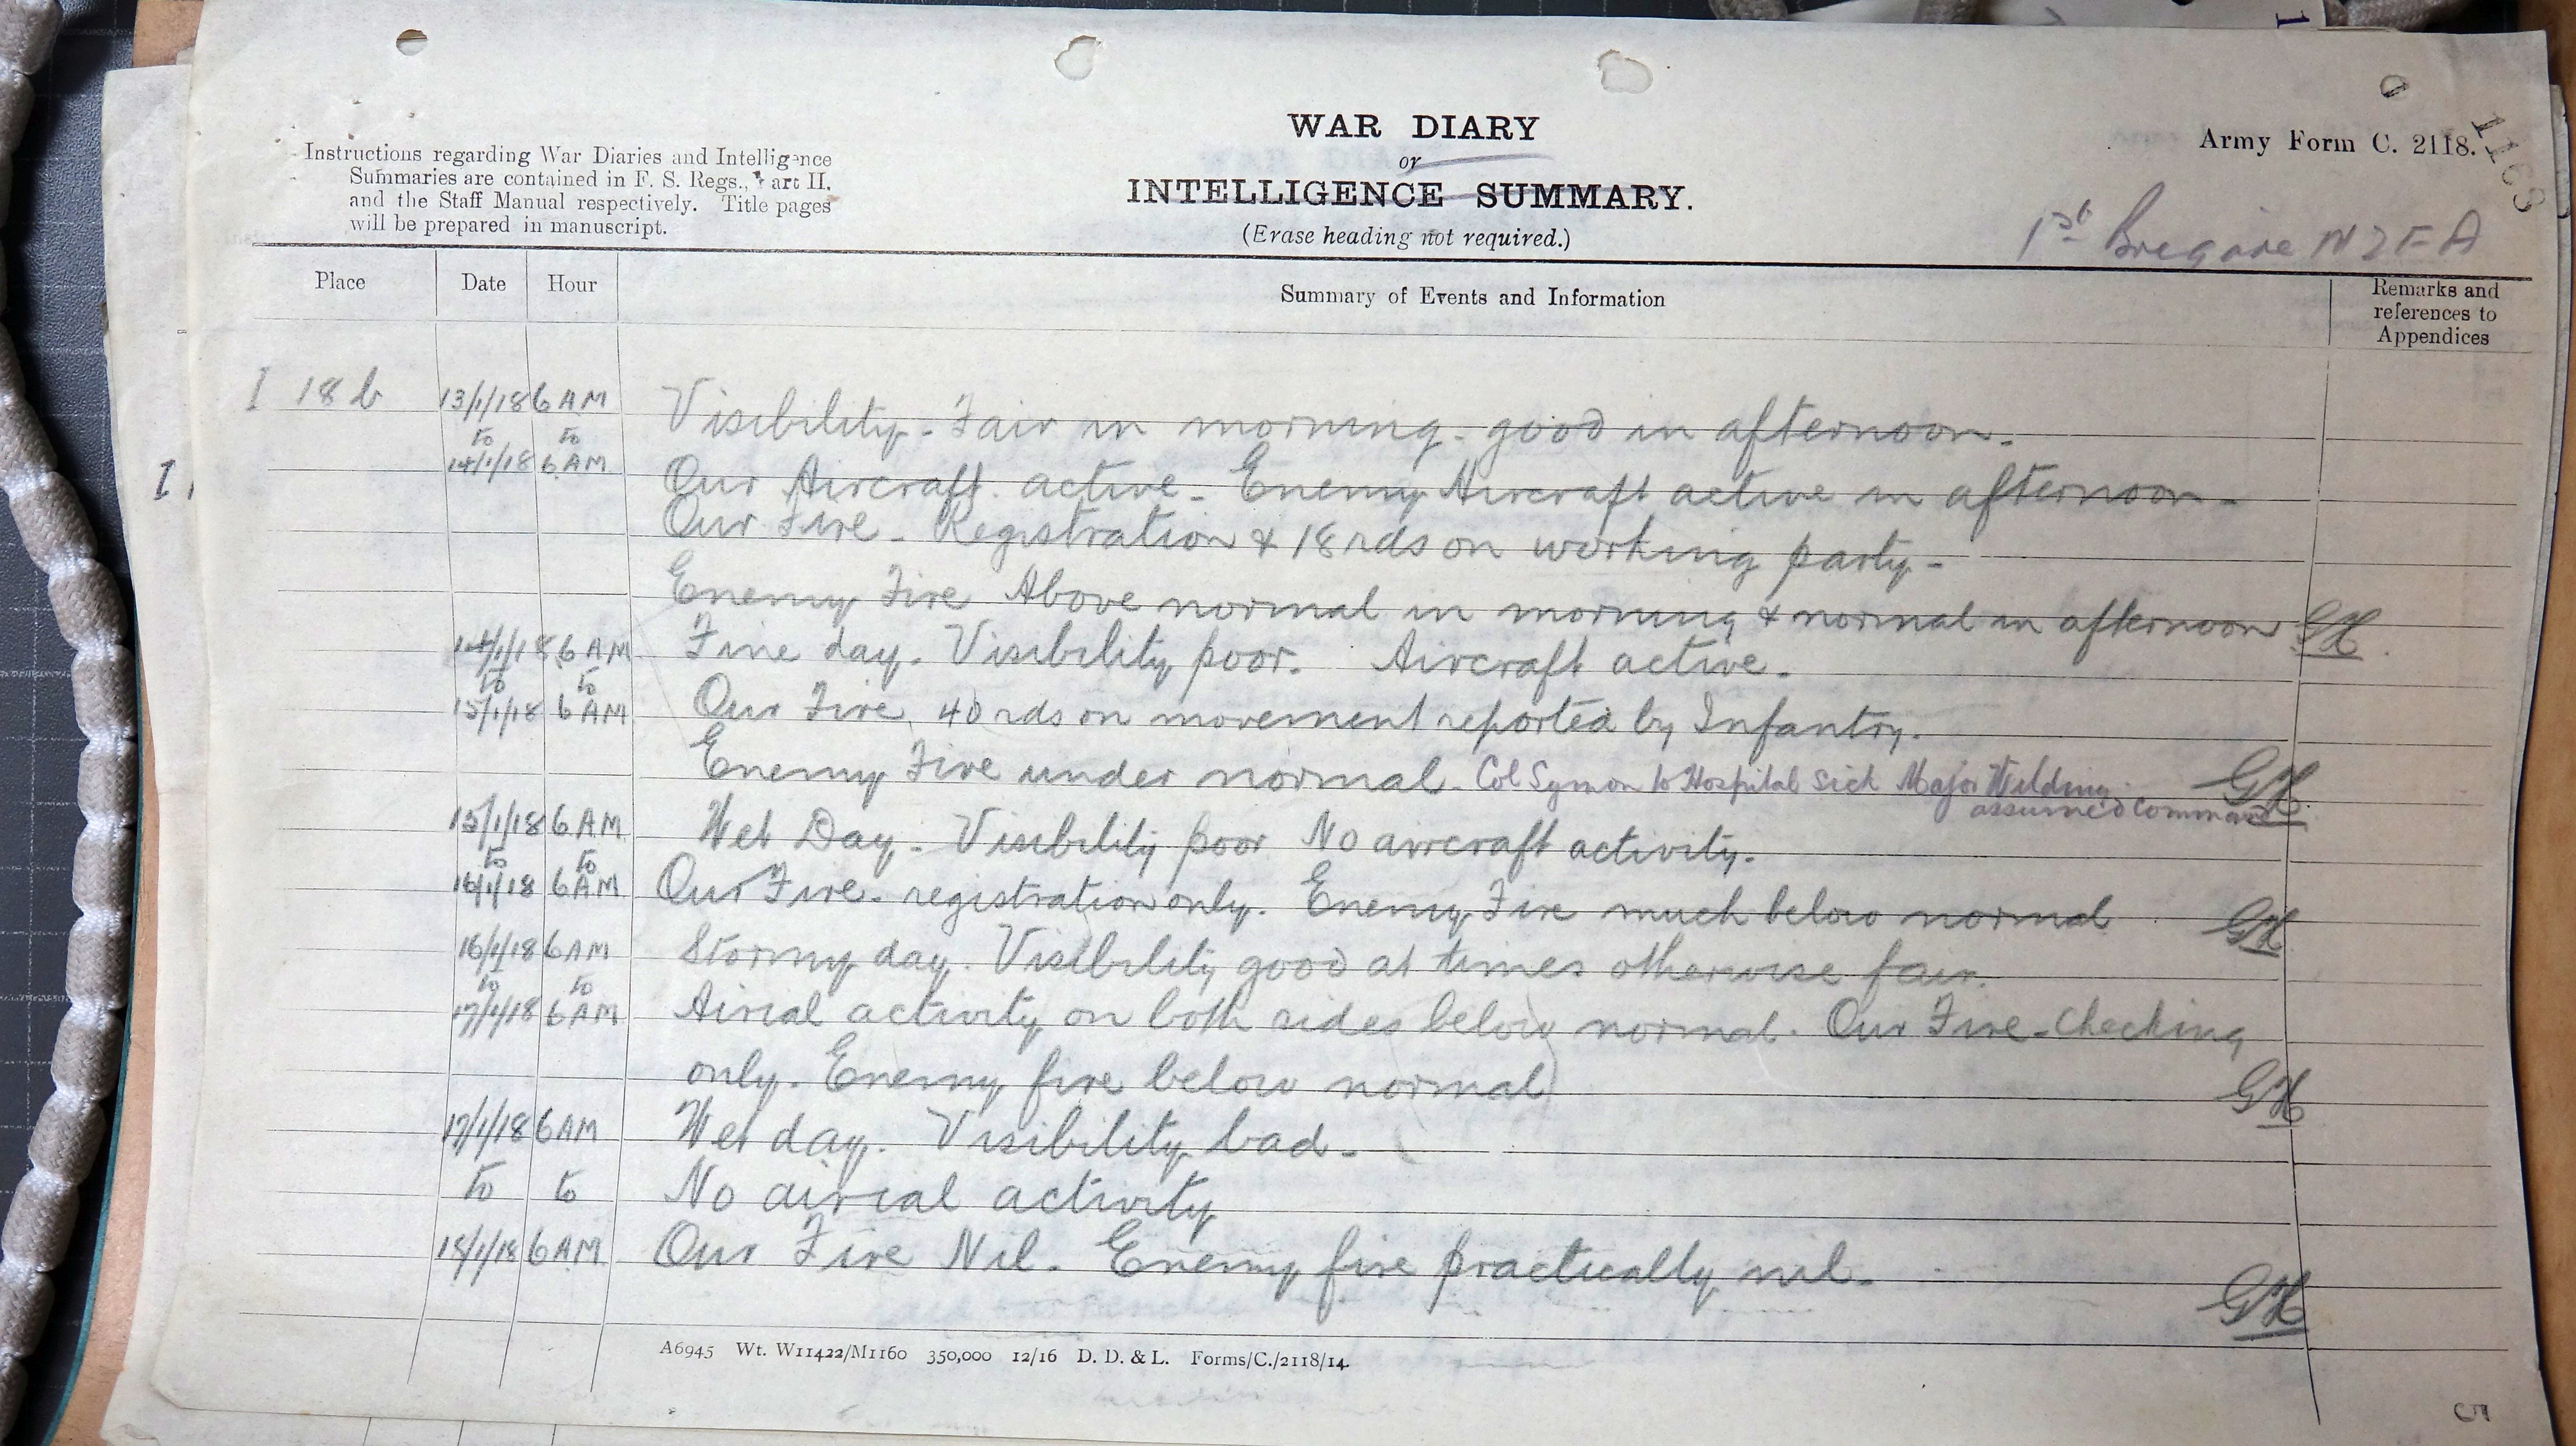 WAR DIARY
or
INTELLIGENCE SUMMARY.
(Erase heading not required.)
Instructions regarding War Diaries and Intelligence
Summaries are contained in F. S. Regs., Part II.
and the Staff Manual respectively. Title pages
will be prepared in manuscript.
Army Form C. 2118.
1163
1st Brigade NZFA
Place Date Hour Summary of Events and Information Remarks and
references to
Appendices
I 18 b 13/1/18 6 AM Visibility - Fair in morning - good in afternoon.
to to
14/1/18 6 AM Our Aircraft active - Enemy Aircraft active in afternoon -
I
Our Fire - Registration & 18 rds on working party -
Enemy Fire Above normal in morning & normal in afternoon GH
14/1/18 6 AM Fine day. Visibility poor. Aircraft active.
to to
15/1/18 6 AM Our Fire, 40 rds on movement reported by Infantry.
Enemy Fire under normal - Col Symon to Hospital sick Major Wilding
assumed command GH
15/1/18 6 AM Wet Day - Visibility poor No aircraft activity.
to to
16/1/18 6 AM Our Fire - registration only. Enemy Fire much below normal GH
16/1/18 6 AM Stormy day. Visibility good at times otherwise fair.
to to
17/1/18 6 AM Airial activity on both sides below normal. Our Fire - Checking
only. Enemy fire below normal GH
17/1/18 6 AM Wet day. Visibility bad -
to to No airial activity
18/1/18 6 AM Our Fire Nil. Enemy fire practically nil - GH
A6945 Wt. W11422/M1160 350,000 12/16 D. D. & L. Forms/C./2118/14.
5